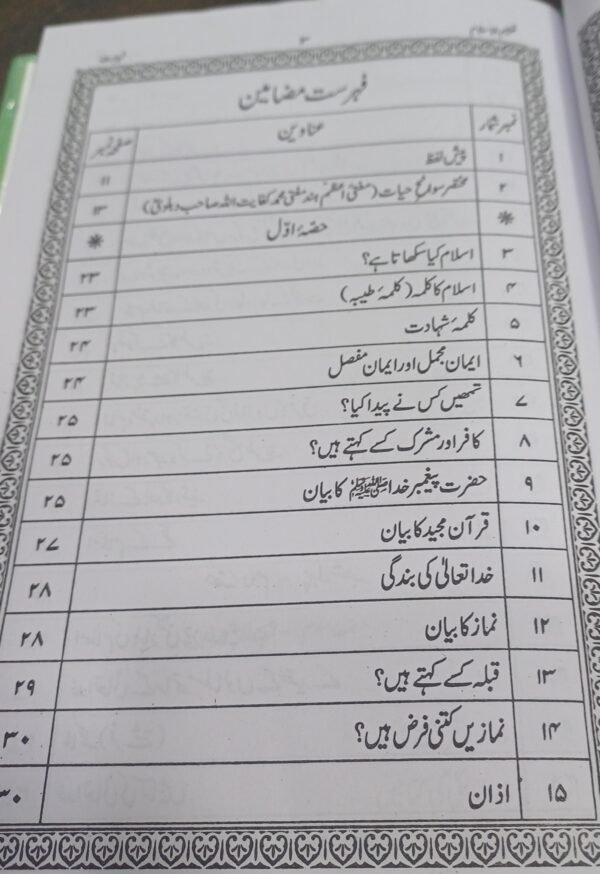 تعلیم الاسلام ۳
فہرست مضامین
نمبر شمار عناوین صفحہ نمبر
۱ پیش لفظ ۱۱
۲ مختصر سوانح حیات (مفتیٔ اعظم ہند مفتی محمد کفایت اللہ صاحب دہلویؒ) ۱۳
* حصّہ اوّل *
۳ اسلام کیا سکھاتا ہے؟ ۲۳
۴ اسلام کا کلمہ (کلمۂ طیبہ) ۲۳
۵ کلمۂ شہادت ۲۴
۶ ایمان مجمل اور ایمان مفصل ۲۴
۷ تمھیں کس نے پیدا کیا؟ ۲۵
۸ کافر اور مشرک کسے کہتے ہیں؟ ۲۵
۹ حضرت پیغمبر خدا ﷺ کا بیان ۲۵
۱۰ قرآن مجید کا بیان ۲۷
۱۱ خدا تعالیٰ کی بندگی ۲۸
۱۲ نماز کا بیان ۲۸
۱۳ قبلہ کسے کہتے ہیں؟ ۲۹
۱۴ نمازیں کتنی فرض ہیں؟ ۳۰
۱۵ اذان ۳۰